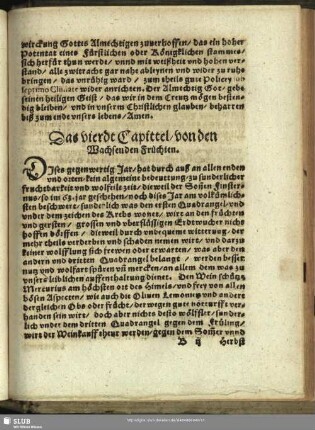 wirckung Gottes Almechtigen zuuerhoffen / das ein hoher
Potentat eines Fürstlichen oder Königklichen stammes /
sich herfür thun werde / vnnd mit weißheit vnd hohen ver-
stand / alle zwitracht gar nahe ableynen vnd wider zu ruhe
bringen / das vnrühig ward / zum theils gute Policey
septimo Climate wider anrichten. Der Almechtig Got / geb
seinen heiligen Geist / das wir in dem Creutz mögen bestend-
dig bleiben / vnd in vnserm Christlichen glauben / beharren
biß zum ende vnsers lebens / Amen.
Das vierdt Capittel / von den
Wachsenden Früchten.
Dises gegenwertig Jar / hat durch auß an allen enden
vnd orten kein algemeine bedeuttung / zu sunderlicher
fruchtbarkeit vnd wolfeile zeit / dieweil der Sonnen Finster-
nus / so im 63. jar geschehen / noch dises Jar am volkümlich-
sten beschwert / sunderlich was den ersten Quadrangel / vnd
vnder dem zeichen des Krebs wonet / wirt an den früchten
vnd gersten / grossen vnd überflüssigen Erdwucher nicht
hoffen dörffen / dieweil durch vnbequeme witterung / der
mehr theils verderben vnd schaden nemen wirt / vnd gar zu
keiner wolfflung sich frewen oder erwarten / was aber den
andern vnd dritten Quadrangel belangt / werden besser
nutz vnd wolfart spüren vñ mercken / an allem dem was zu
vnsers leiblichen auffenthaltung dienet. Den Wein schützt
Mercurius am höchsten ort des Himels / vnd frey von allen
bösen Aspecten / wie auch die Oliuen Lemonien vnd andere
dergleichen Obs oder frücht / der wegen gute notturfft ver-
handen sein wirt / doch aber nichts desto wölffler / sunder-
lich vnder dem dritten Quadrangel gegen dem Früling /
wirt der Weinkauff thewr werden / gegen dem Som̃er vnnd
B ij Herbst
SLUB